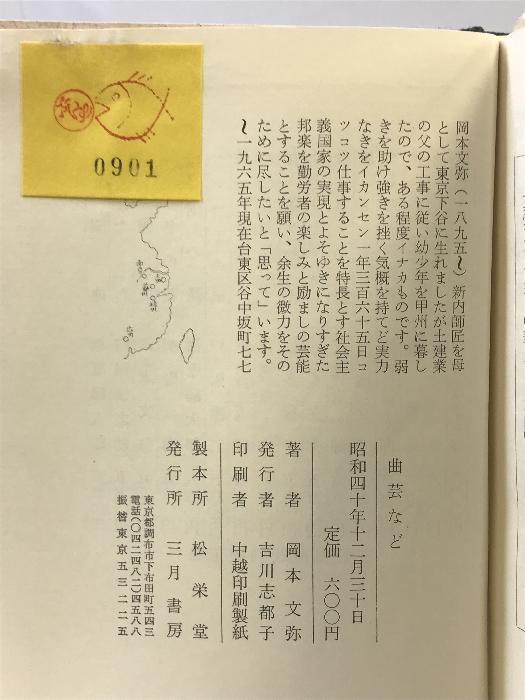 0901
岡本文弥(一八九五〜)新内師匠を母
として東京下谷に生れましたが土建業
の父の工事に従い幼少年を甲州に暮し
たので、ある程度イナカものです。弱
きを助け強きを挫く気概を持てど実力
なきをイカンセン一年三百六十五日コ
ツコツ仕事することを特長とす社会主
義国家の実現とよそゆきになりすぎた
邦楽を勤労者の楽しみと励ましの芸能
とすることを願い、余生の微力をその
ために尽したいと「思って」います。
〜一九六五年現在台東区谷中坂町七七
曲芸など
昭和四十年十二月三十日
定価 六〇〇円
著者 岡本文弥
発行者 吉川志都子
印刷者 中越印刷製紙
製本所 松栄堂
発行所 三月書房
東京都調布市下布田町五四三
電話(〇四二四八二)四五八八
振替東京五三二二五